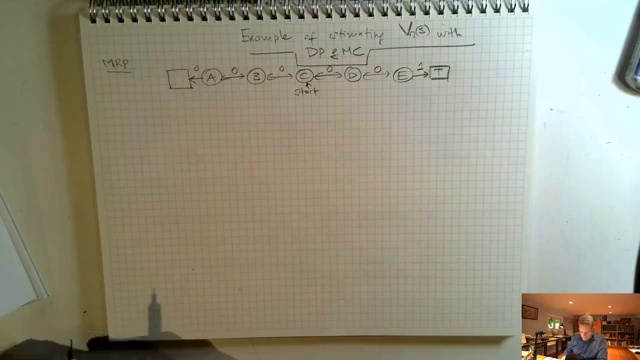 Example of estimating Vπ(s) with
DP & MC
MRP
0 A 0 B 0 C 0 D 0 E 1 T
start